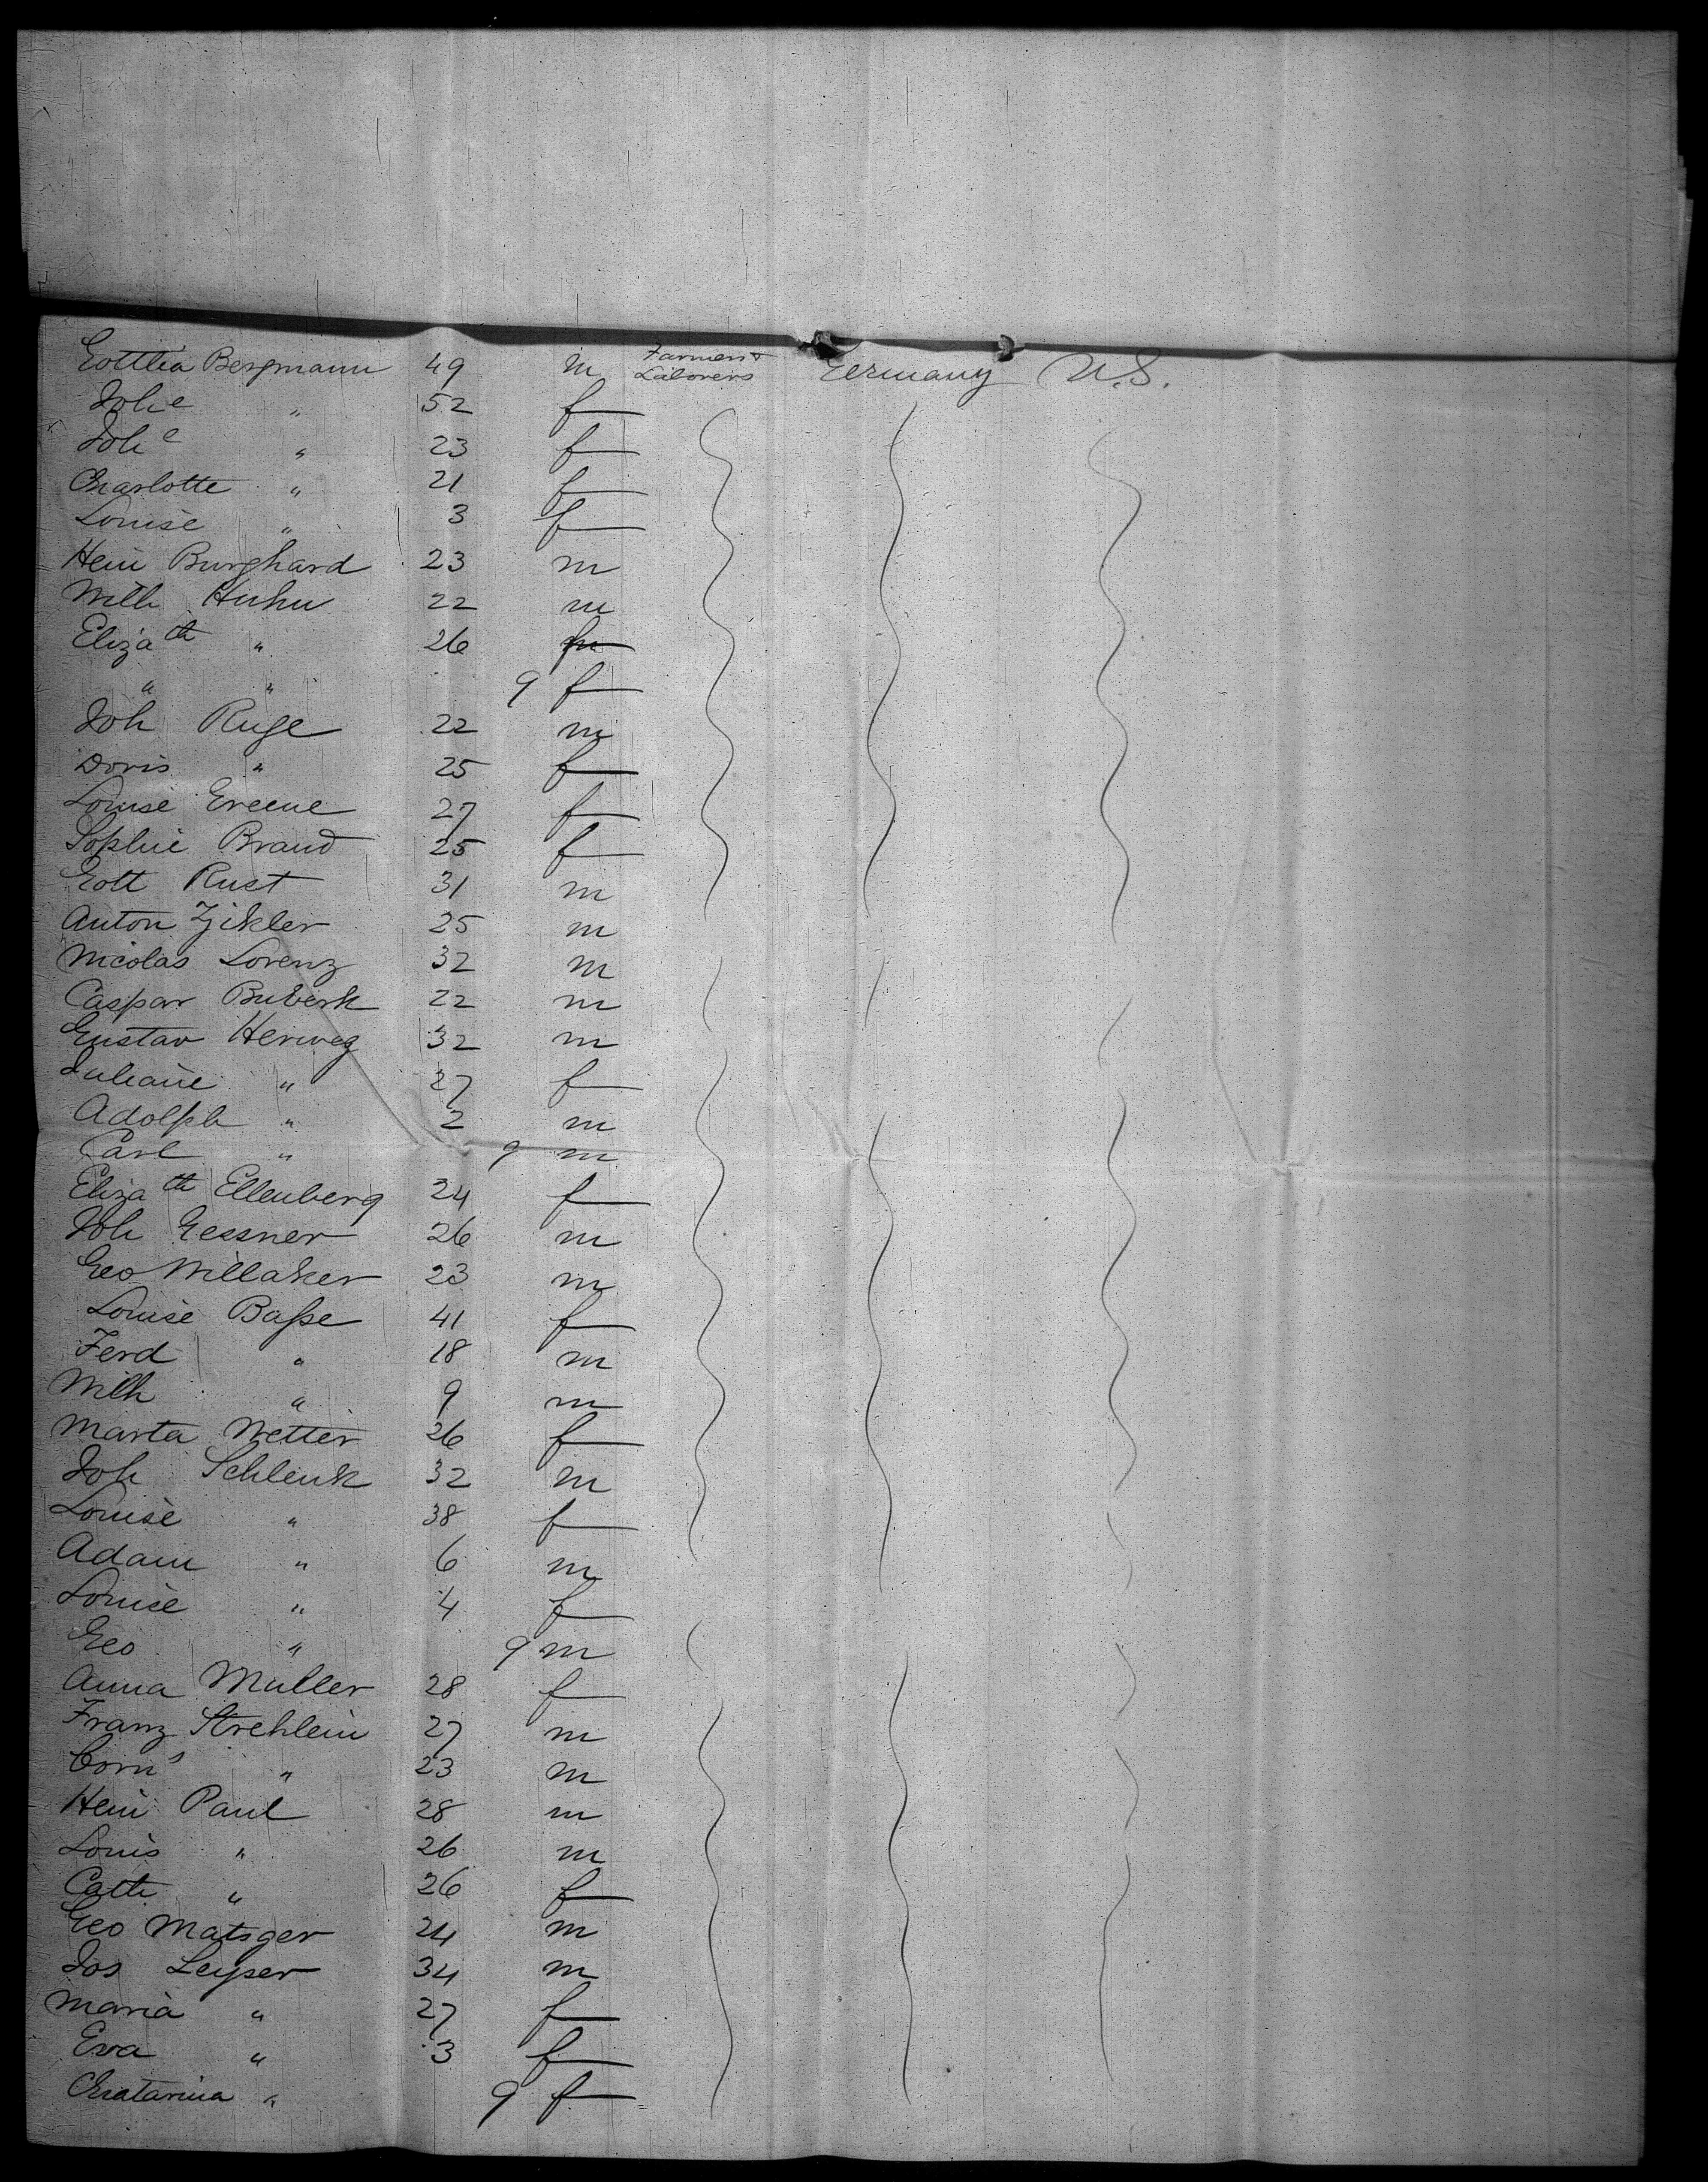 Gottlia Bergmann 49 m Farmers & Laborers Germany U.S.
Joh e " 52 f
Joh e " 23 f
Charlotte " 21 f
Louise " 3 f
Hein Burghard 23 m
Wilh Huhn 22 m
Eliza th " 26 f
" " 9 f
Joh Ruge 22 m
Doris " 25 f
Louise Greene 27 f
Sophie Brand 25 f
Gott Rust 31 m
Anton Zikler 25 m
Nicolas Lorenz 32 m
Caspar Buberk 22 m
Gustav Herweg 32 m
Juliane " 27 f
Adolph " 2 m
Carl " 9 m
Eliza th Ellenberg 24 f
Joh Gessner 26 m
Geo Willaker 23 m
Louise Baſse 41 f
Ferd " 18 m
Wilh " 9 m
Marta Wetter 26 f
Joh Schlenk 32 m
Louise " 38 f
Adam " 6 m
Louise " 4 f
Geo " 9 m
Anna Muller 28 f
Franz Strehlein 27 m
Corn s " 23 m
Hein Paul 28 m
Louis " 26 m
Cath " 26 f
Geo Matsger 24 m
Jos Leyser 34 m
Maria " 27 f
Eva " 3 f
Chatarina " 9 f